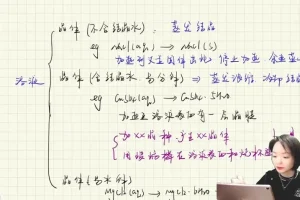 晶体(不含结晶水): 蒸发结晶
eg NaCl(aq) → NaCl(s)
加热到大量固体出现, 停止加热, 余
溶液
晶体(含结晶水, 易分解) ⇒ 蒸发浓缩, 冷却结
eg CuSO4(aq) → CuSO4·5H2O
加热至溶液表面有一层晶膜
加××晶种, 产生××晶体
用玻璃棒在溶液表面和
晶体(易水解)
MgCl2(aq) → MgCl2·6H2O